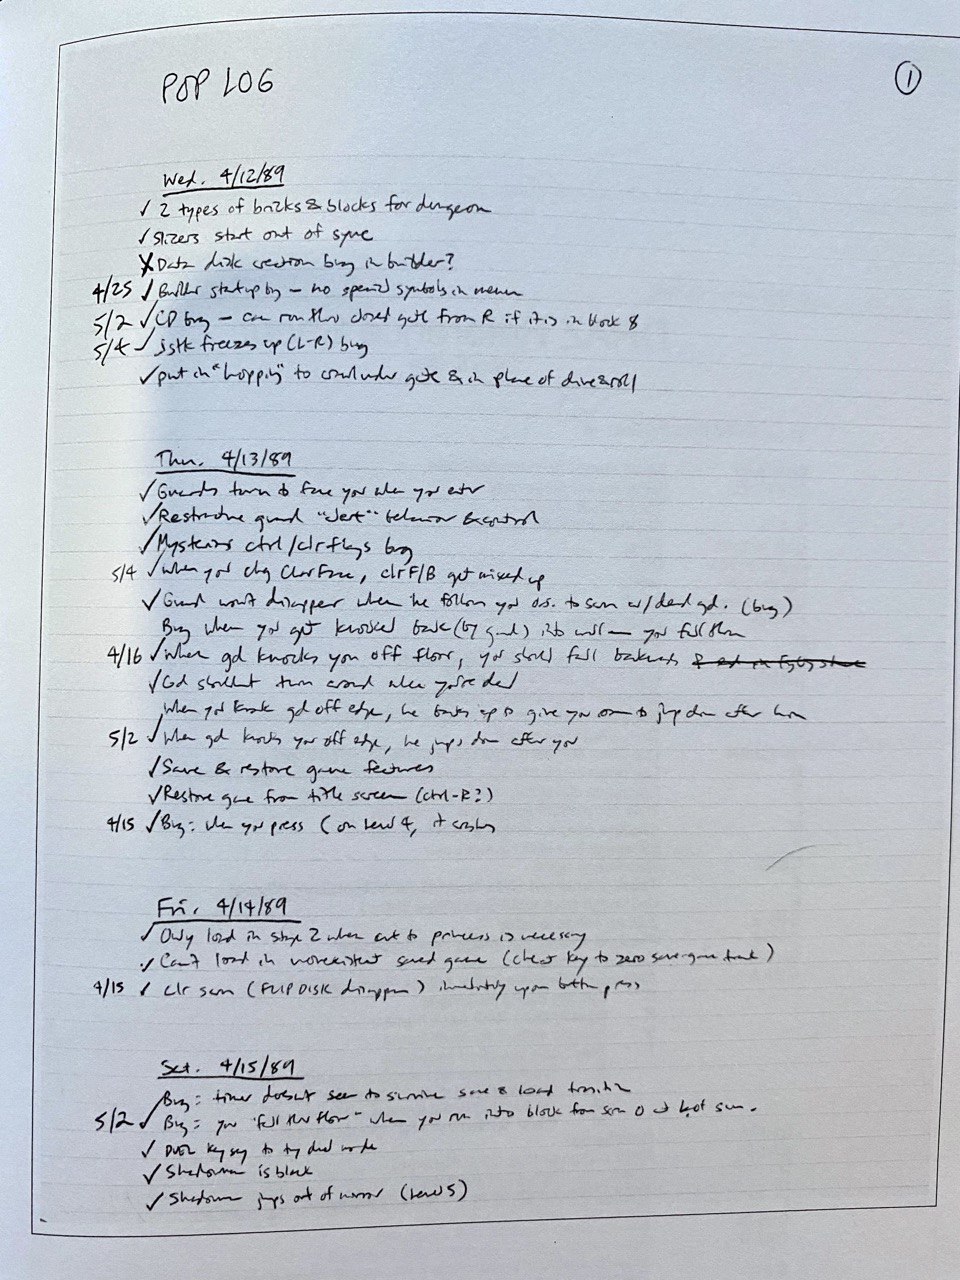 POP LOG
1
Wed. 4/12/89
✓ 2 types of bricks & blocks for dungeon
✓ Slicers start out of sync
X Data disk creation bug in builder?
4/25 ✓ Builder startup bug – no special symbols in menu
5/2 ✓ CD bug – can run thru closed gate from R if it is in block 8
5/4 ✓ jstk freezes up (L-R) bug
✓ put in "hopping" to crawl under gate & in place of dive & roll
Thu. 4/13/89
✓ Guards turn to face you when you enter
✓ Restructure guard "alert" behavior & control
✓ Mysterious ctrl/clrflags bug
5/4 ✓ When you chg CharFace, clrF/B get mixed up
✓ Guard won't disappear when he follows you o.s. to scrn w/dead gd. (bug)
Bug when you get knocked back (by guard) into wall you fall thru
4/16 ✓ When gd knocks you off floor, you should fall backwards
✓ Gd shouldn't turn around when you're dead
When you knock gd off edge, he backs up to give you room to jump down after him
5/2 ✓ When gd knocks you off edge, he jumps down after you
✓ Save & restore game features
✓ Restore game from title screen (ctrl-R?)
4/15 ✓ Bug: when you press ( on Level 4, it crashes
Fri. 4/14/89
✓ Only load in stage 2 when cut to princess is necessary
✓ Can't load in nonexistent saved game (cheat key to zero save-game track)
4/15 ✓ clr scrn (FLIP DISK disappears) immediately upon button press
Sat. 4/15/89
✓ Bug: timer doesn't seem to survive save & load transition
5/2 ✓ Bug: you "fall thru floor" when you run into block from scrn 0 at bot of scrn.
✓ key to try mode
✓ Shadowman is black
✓ Shadowman jumps out of mirror (Level 5)